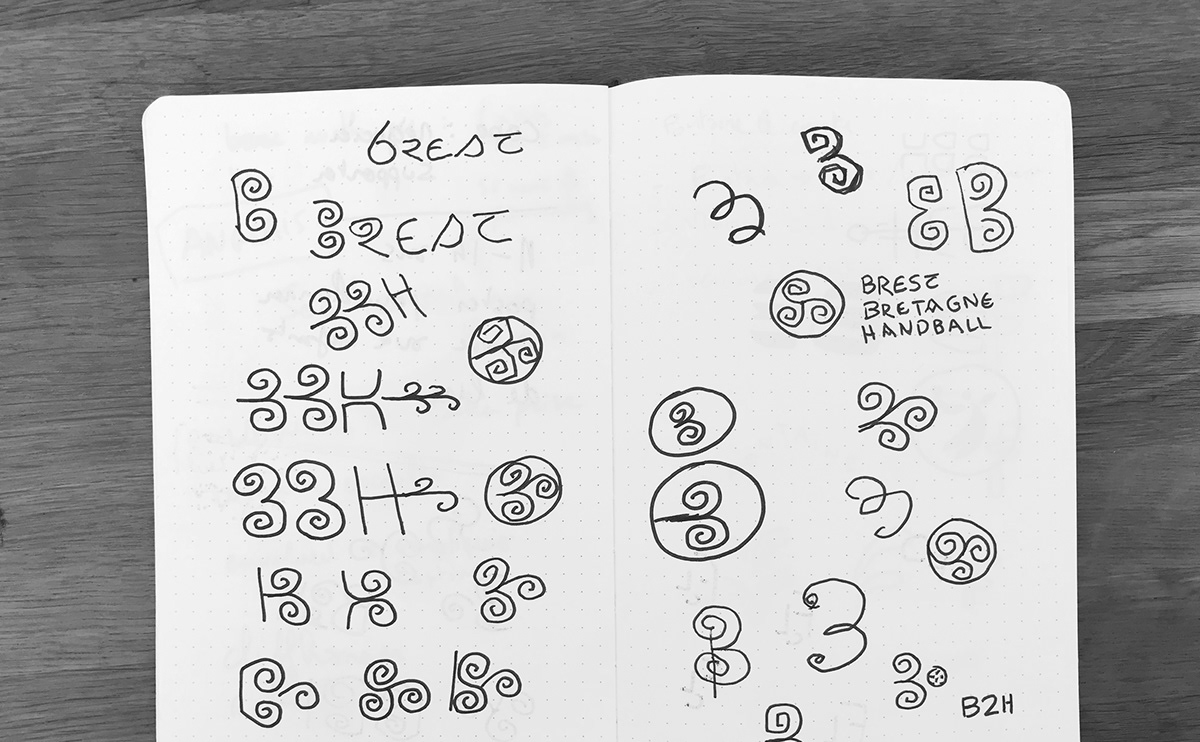 BREST
BREST
BBH
BBH
BBH
BREST
BRETAGNE
HANDBALL
B2H